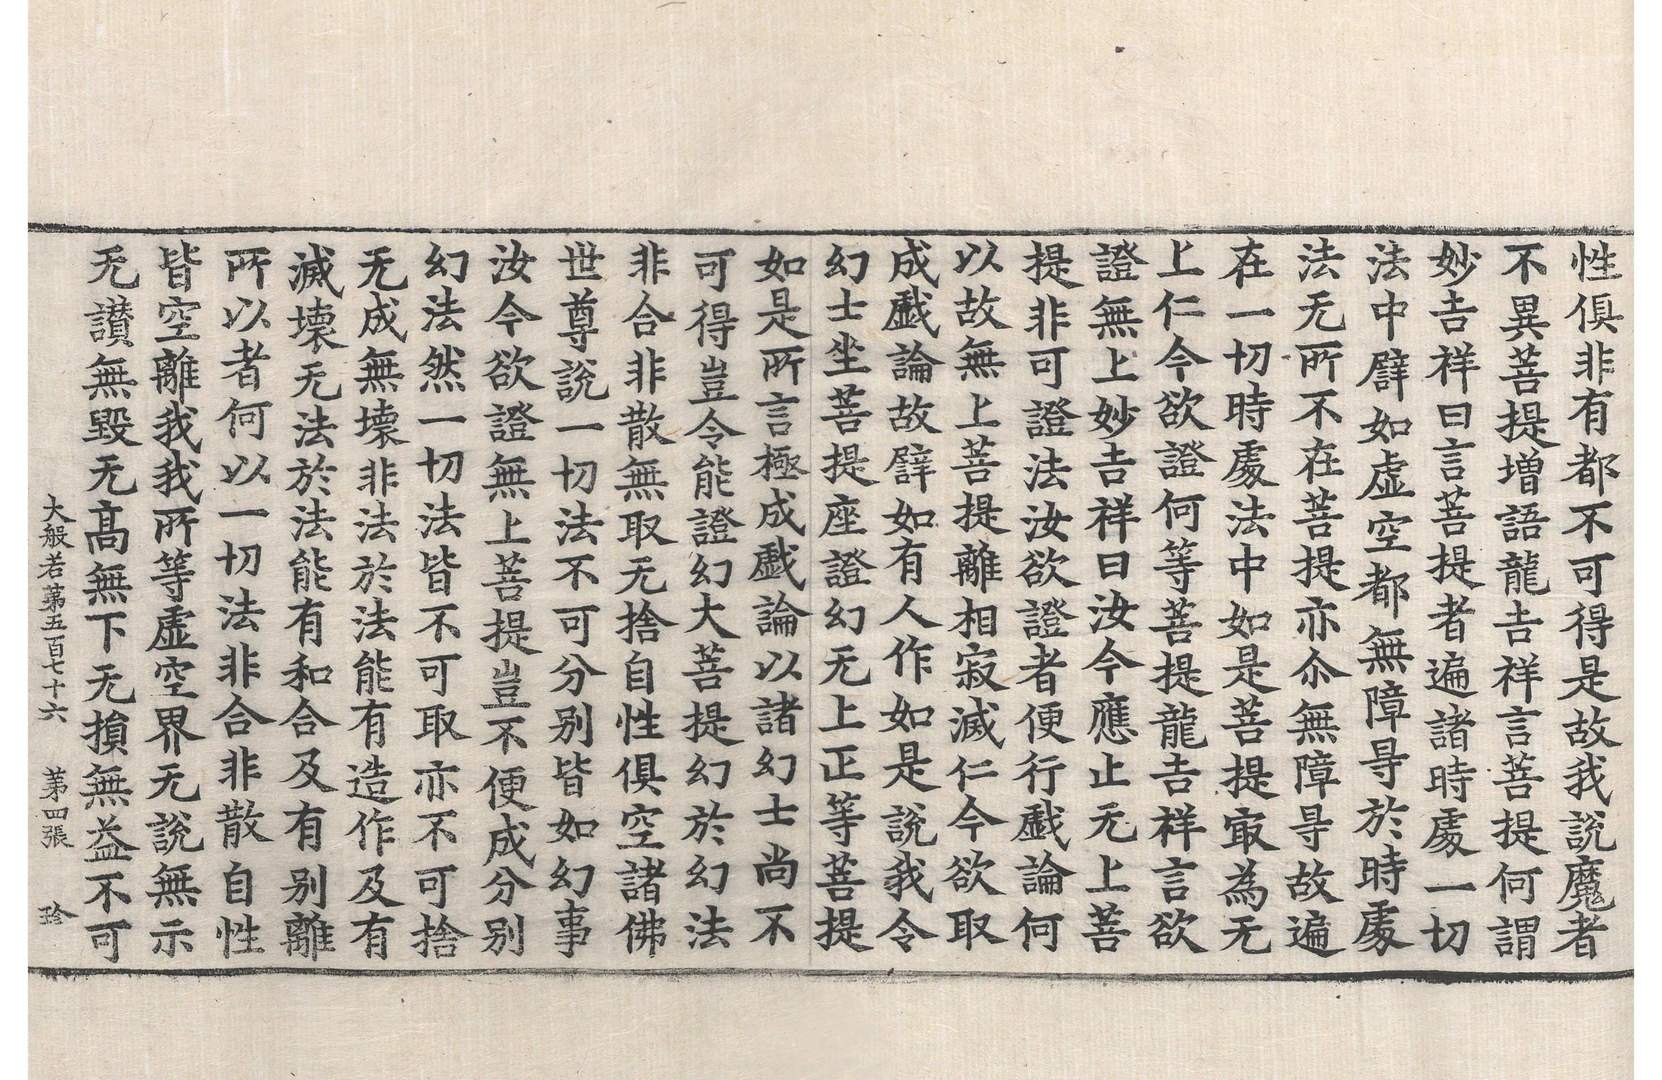 性俱非有都不可得是故我說魔者
不異菩提增語龍吉祥言菩提何謂
妙吉祥曰言菩提者遍諸時處一切
法中譬如虛空都無障㝵於時處
法无所不在菩提亦尒無障㝵故遍
在一切時處法中如是菩提㝡為无
上仁今欲證何等菩提龍吉祥言欲
證無上妙吉祥曰汝今應止无上菩
提非可證法汝欲證者便行戲論何
以故無上菩提離相寂滅仁今欲取
成戲論故譬如有人作如是說我令
幻士坐菩提座證幻无上正等菩提
如是所言極成戲論以諸幻士尚不
可得豈令能證幻大菩提幻於幻法
非合非散無取无捨自性俱空諸佛
世尊說一切法不可分別皆如幻事
汝今欲證無上菩提豈不便成分別
幻法然一切法皆不可取亦不可捨
无成無壞非法於法能有造作及有
滅壞无法於法能有和合及有別離
所以者何以一切法非合非散自性
皆空離我我所等虛空界无說無示
无讚無毀无高無下无損無益不可
大般若第五百七十六　第四張　珍